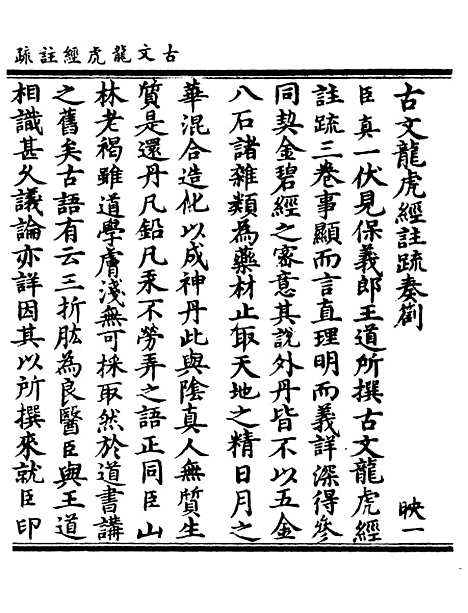 古文龍虎經註疏
古文龍虎經註疏奏劄
映一
臣真一伏見保義郎王道所撰古文龍虎經
註疏三卷事顯而言直理明而義詳深得參
同契金碧經之密意其說外丹皆不以五金
八石諸雜類為藥材止取天地之精日月之
華混合造化以成神丹此與陰真人無質生
質是還丹凡鉛凡汞不勞弄之語正同臣山
林老褐雖道學膚淺無可採取然於道書講
之舊矣古語有云三折肱為良醫臣與王道
相識甚久議論亦詳因其以所撰來就臣印